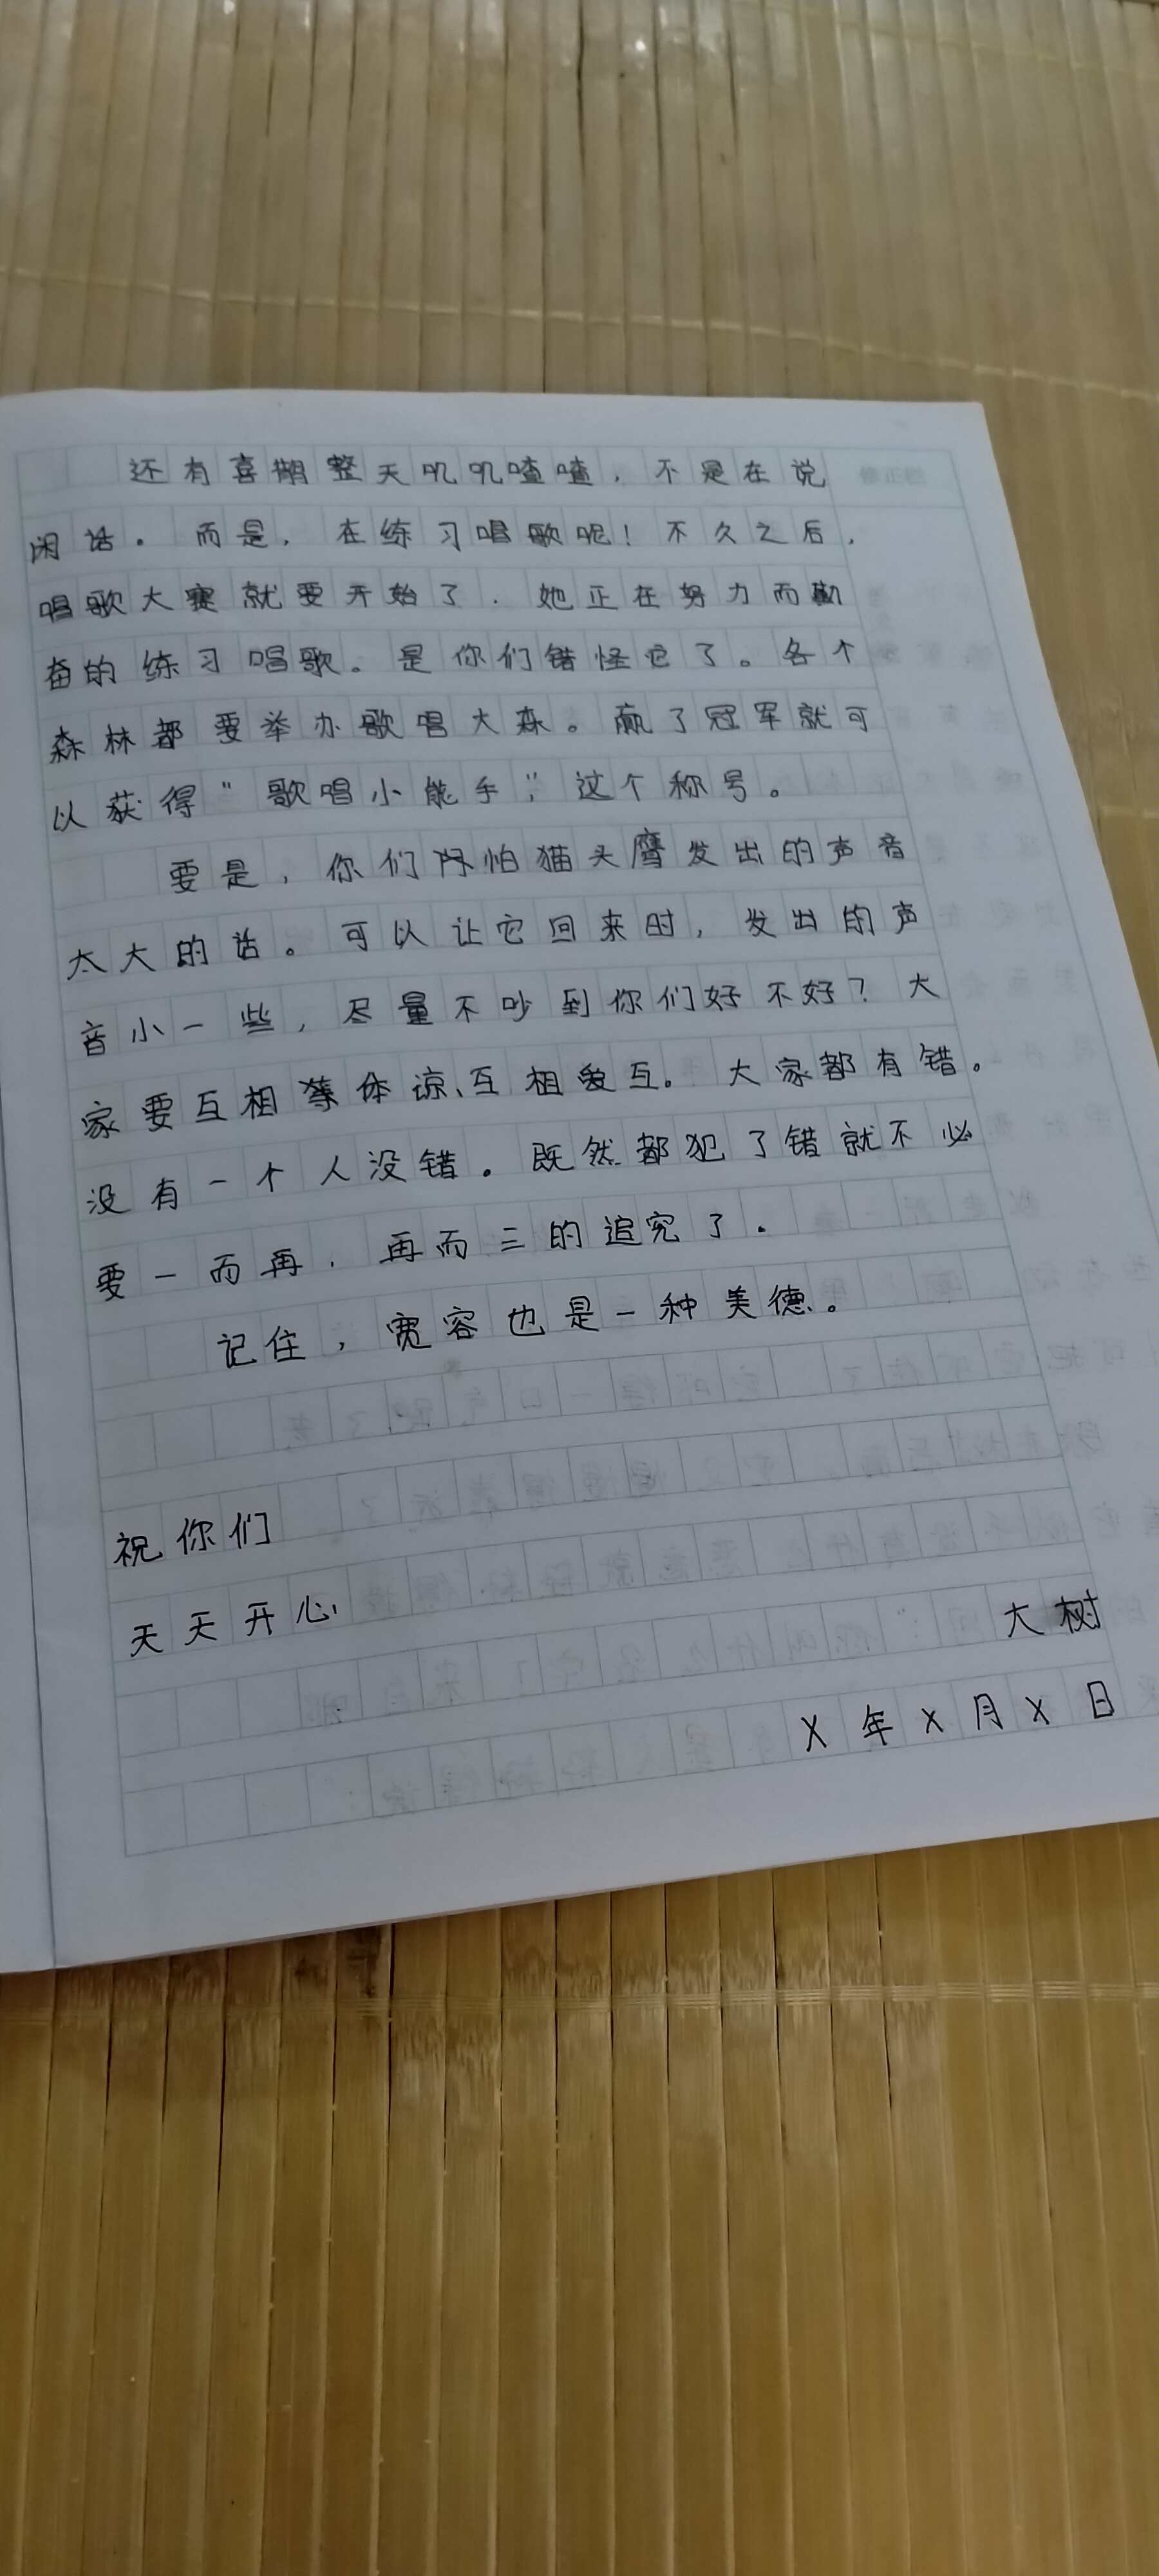 还有喜鹊整天叽叽喳喳，不是在说
闲话。而是，在练习唱歌呢！不久之后，
唱歌大赛就要开始了．她正在努力而勤
奋的练习唱歌。是你们错怪它了。各个
森林都要举办歌唱大森。赢了冠军就可
以获得"歌唱小能手"，这个称号。
要是，你们怕猫头鹰发出的声音
太大的话。可以让它回来时，发出的声
音小一些，尽量不吵到你们好不好？大
家要互相体谅、互相爱互。大家都有错。
没有一个人没错。既然都犯了错就不必
要一而再，再而三的追究了．
记住，宽容也是一种美德。
祝你们
天天开心
大树
X年X月X日